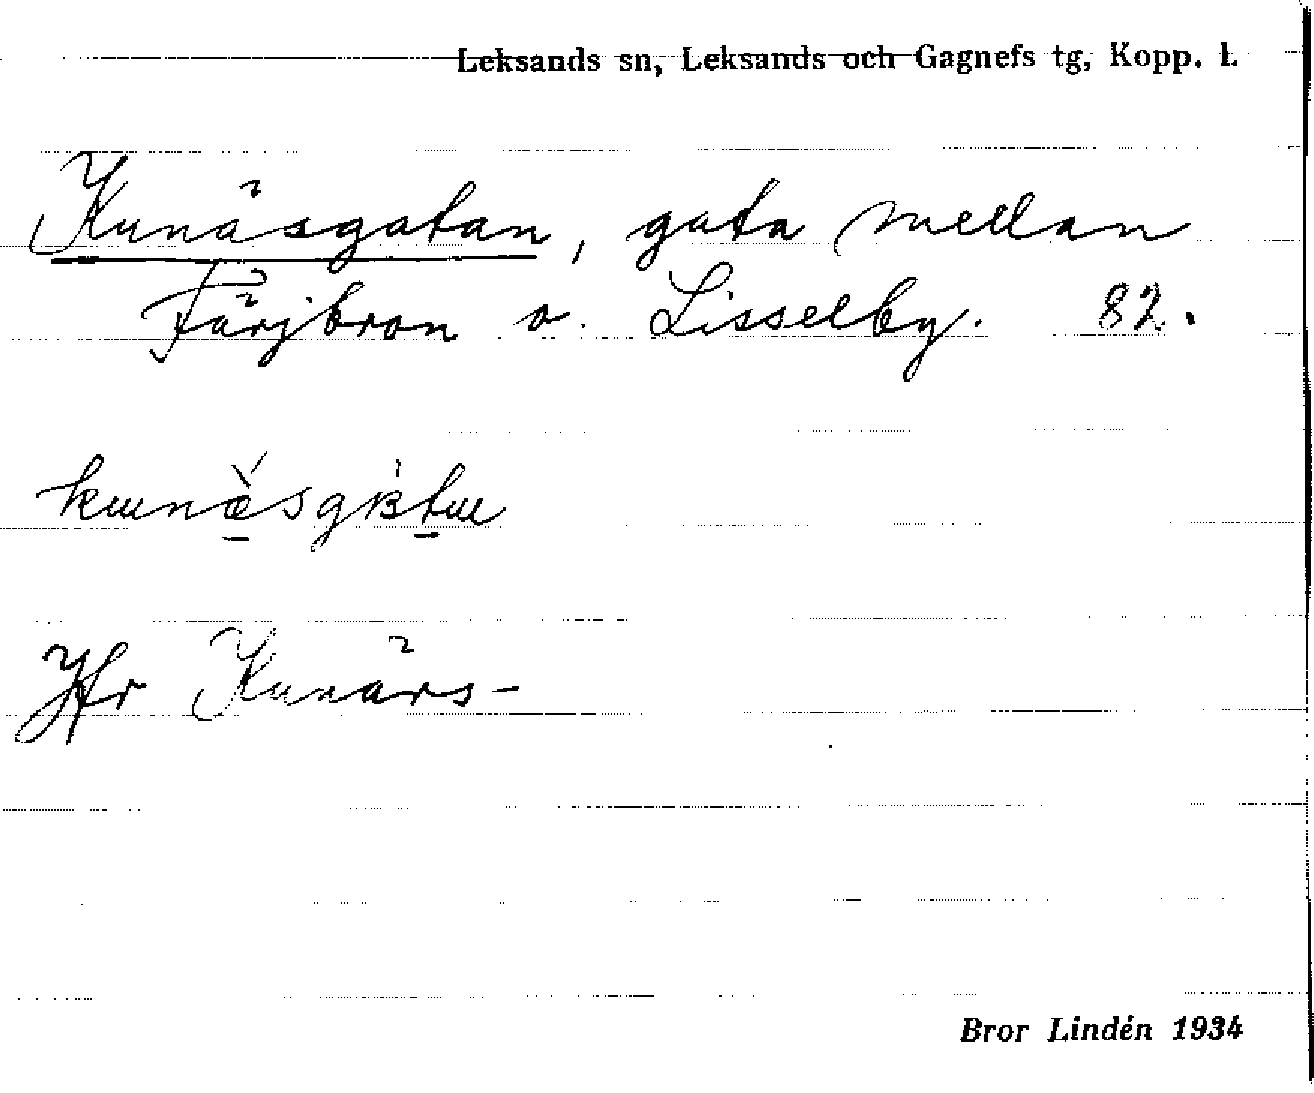 Leksands sn, Leksands och Gagnefs tg, Kopp. l.
Kunäsgatan, gata mellan
Färjbron o. Lisselby. 82.
Jfr Kunärs-
Bror Lindén 1934